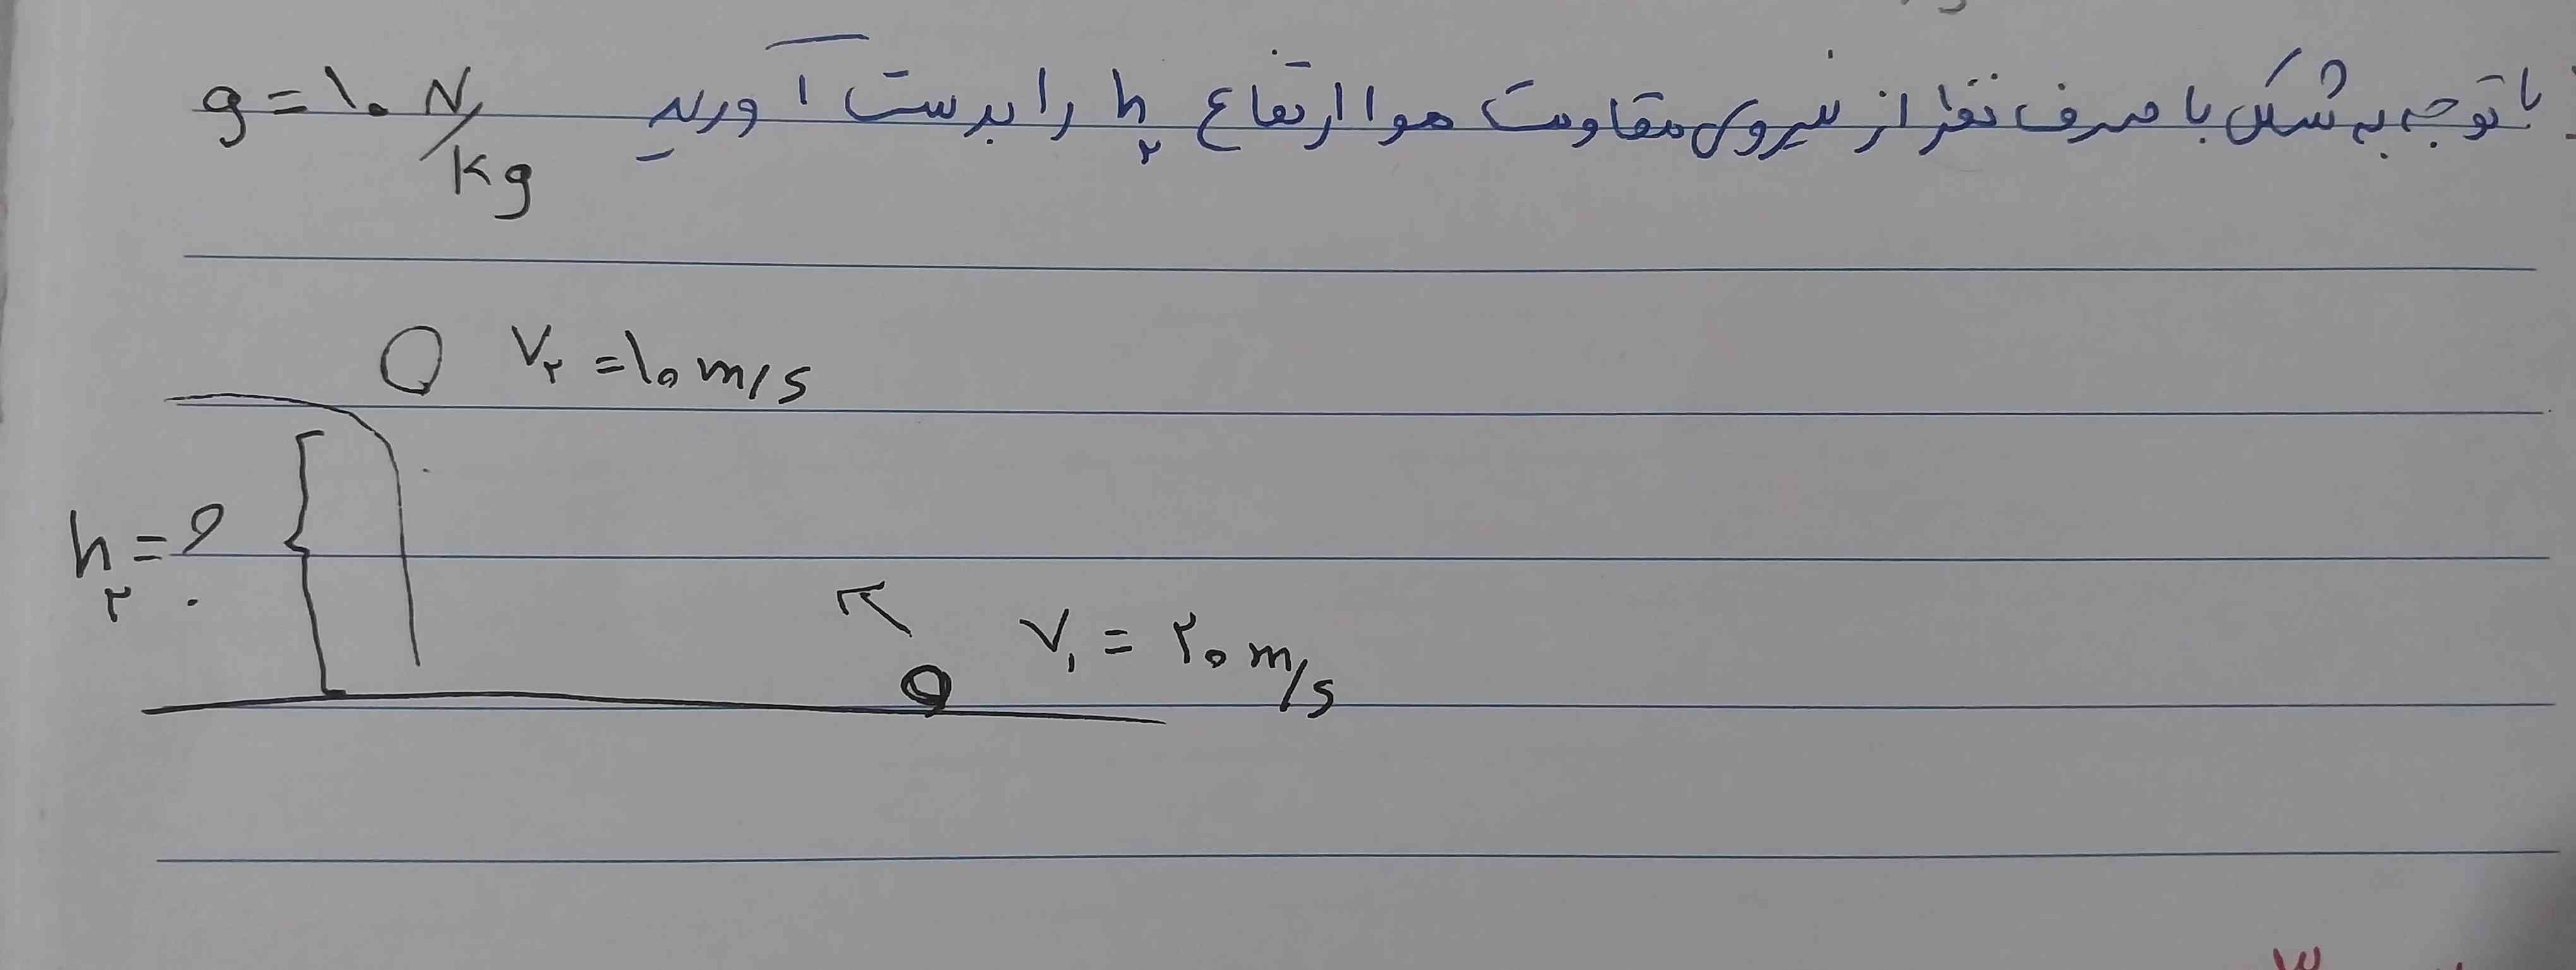 با توجه به شکل با صرف نظر از نیروی مقاومت هوا ارتفاع h₂ را بدست آورید g = ۱۰ N/kg
V₂ = ۱۰ m/s
h₂ = ؟
V₁ = ۲۰ m/s